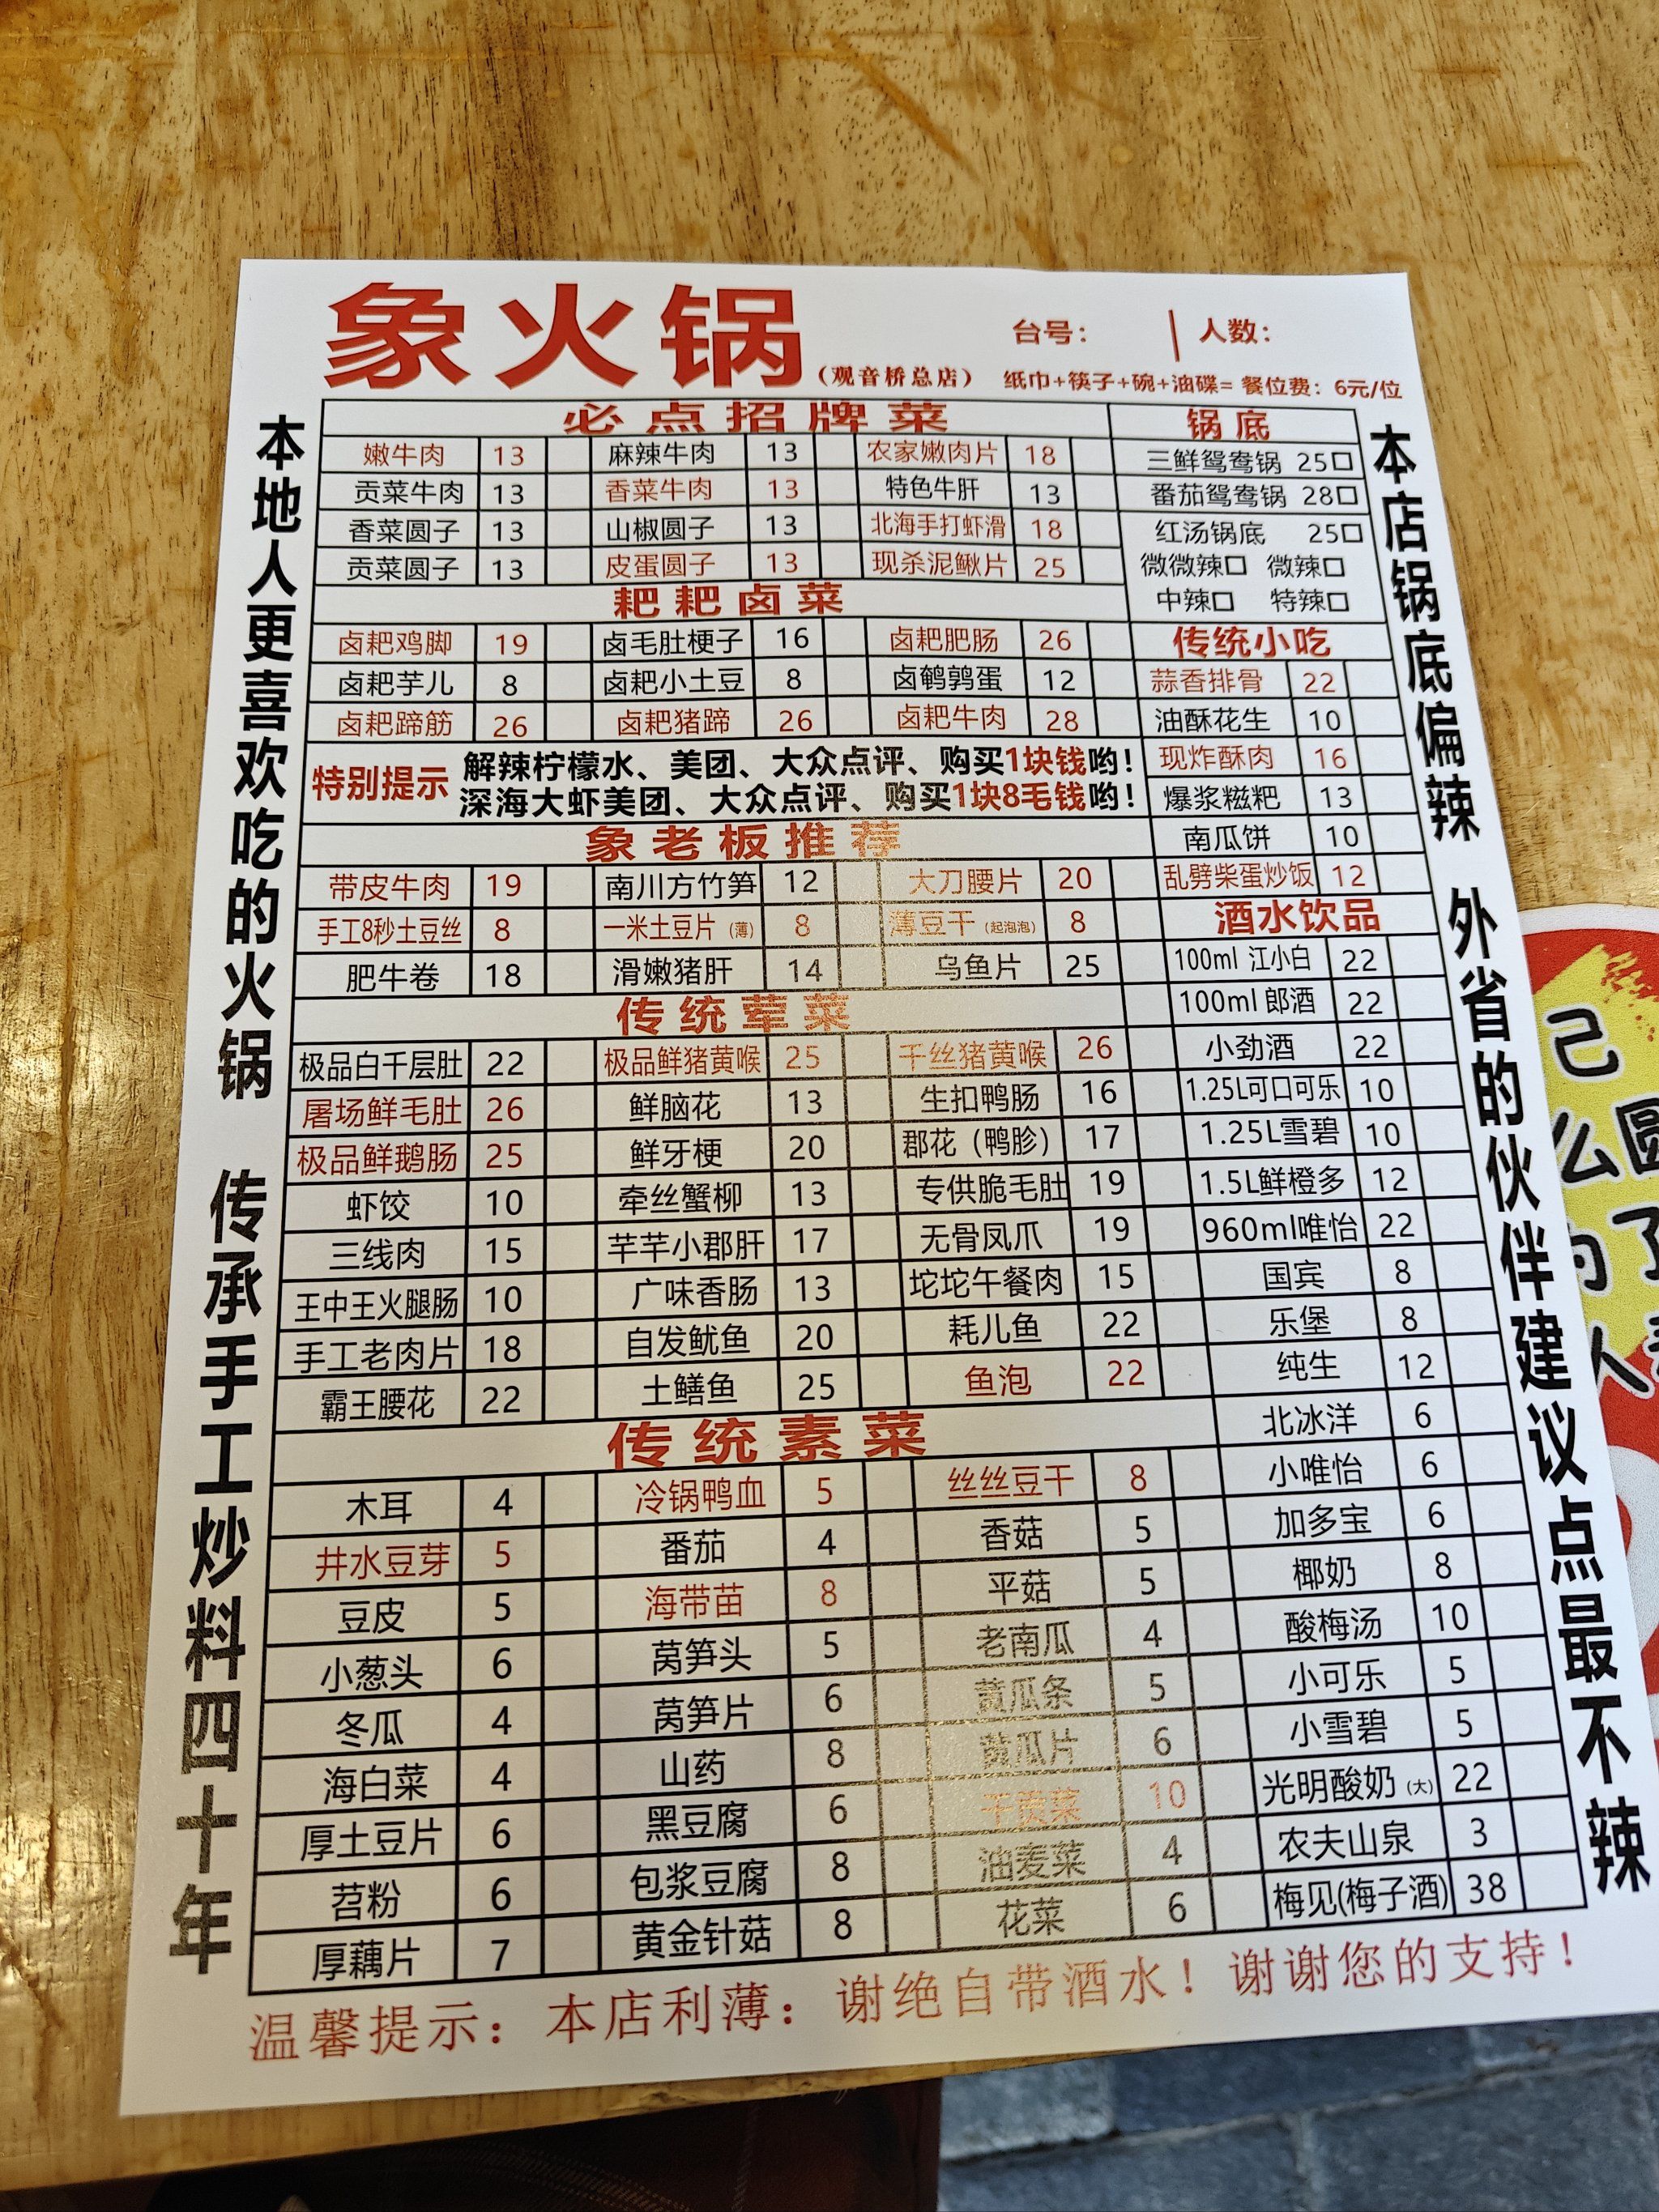 象火锅
（观音桥总店）
台号： | 人数：
纸巾+筷子+碗+油碟= 餐位费：6元/位
本地人更喜欢吃的火锅 传承手工炒料四十年
必点招牌菜
嫩牛肉 13 麻辣牛肉 13 农家嫩肉片 18
贡菜牛肉 13 香菜牛肉 13 特色牛肝 13
香菜圆子 13 山椒圆子 13 北海手打虾滑 18
贡菜圆子 13 皮蛋圆子 13 现杀泥鳅片 25
耙耙卤菜
卤耙鸡脚 19 卤毛肚梗子 16 卤耙肥肠 26
卤耙芋儿 8 卤耙小土豆 8 卤鹌鹑蛋 12
卤耙蹄筋 26 卤耙猪蹄 26 卤耙牛肉 28
特别提示
解辣柠檬水、美团、大众点评、购买1块钱哟！
深海大虾美团、大众点评、购买1块8毛钱哟！
象老板推荐
带皮牛肉 19 南川方竹笋 12 大刀腰片 20
手工8秒土豆丝 8 一米土豆片（薄） 8 薄豆干（起泡泡） 8
肥牛卷 18 滑嫩猪肝 14 乌鱼片 25
传统荤菜
极品白千层肚 22 极品鲜猪黄喉 25 千丝猪黄喉 26
屠场鲜毛肚 26 鲜脑花 13 生扣鸭肠 16
极品鲜鹅肠 25 鲜牙梗 20 郡花（鸭胗） 17
虾饺 10 牵丝蟹柳 13 专供脆毛肚 19
三线肉 15 芊芊小郡肝 17 无骨凤爪 19
王中王火腿肠 10 广味香肠 13 坨坨午餐肉 15
手工老肉片 18 自发鱿鱼 20 耗儿鱼 22
霸王腰花 22 土鳝鱼 25 鱼泡 22
传统素菜
木耳 4 冷锅鸭血 5 丝丝豆干 8
井水豆芽 5 番茄 4 香菇 5
豆皮 5 海带苗 8 平菇 5
小葱头 6 莴笋头 5 老南瓜 4
冬瓜 4 莴笋片 6 黄瓜条 5
海白菜 4 山药 8 黄瓜片 6
厚土豆片 6 黑豆腐 6 干贡菜 10
苕粉 6 包浆豆腐 8 油麦菜 4
厚藕片 7 黄金针菇 8 花菜 6
锅底
三鲜鸳鸯锅 25□
番茄鸳鸯锅 28□
红汤锅底 25□
微微辣□ 微辣□
中辣□ 特辣□
传统小吃
蒜香排骨 22
油酥花生 10
现炸酥肉 16
爆浆糍粑 13
南瓜饼 10
乱劈柴蛋炒饭 12
酒水饮品
100ml 江小白 22
100ml 郎酒 22
小劲酒 22
1.25L可口可乐 10
1.25L雪碧 10
1.5L鲜橙多 12
960ml唯怡 22
国宾 8
乐堡 8
纯生 12
北冰洋 6
小唯怡 6
加多宝 6
椰奶 8
酸梅汤 10
小可乐 5
小雪碧 5
光明酸奶（大） 22
农夫山泉 3
梅见(梅子酒) 38
本店锅底偏辣 外省的伙伴建议点最不辣
温馨提示：本店利薄：谢绝自带酒水！谢谢您的支持！
己
么圆
了
人